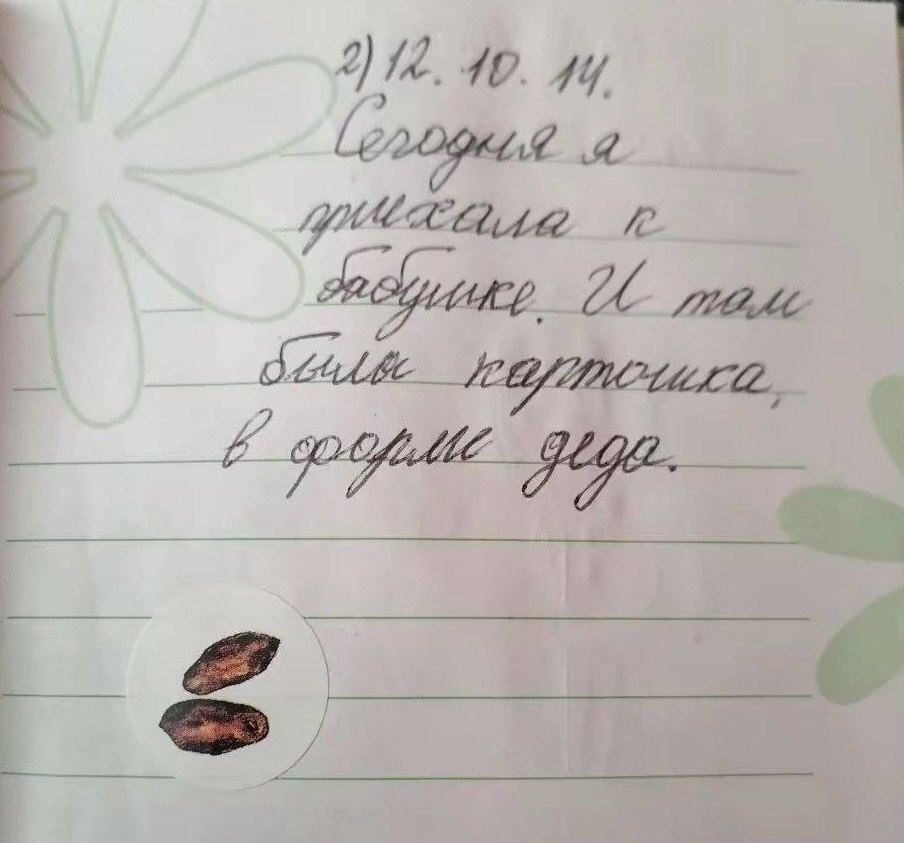 2) 12. 10. 14.
Сегодня я
приехала к
бабушке. И там
была карточка,
в форме деда.